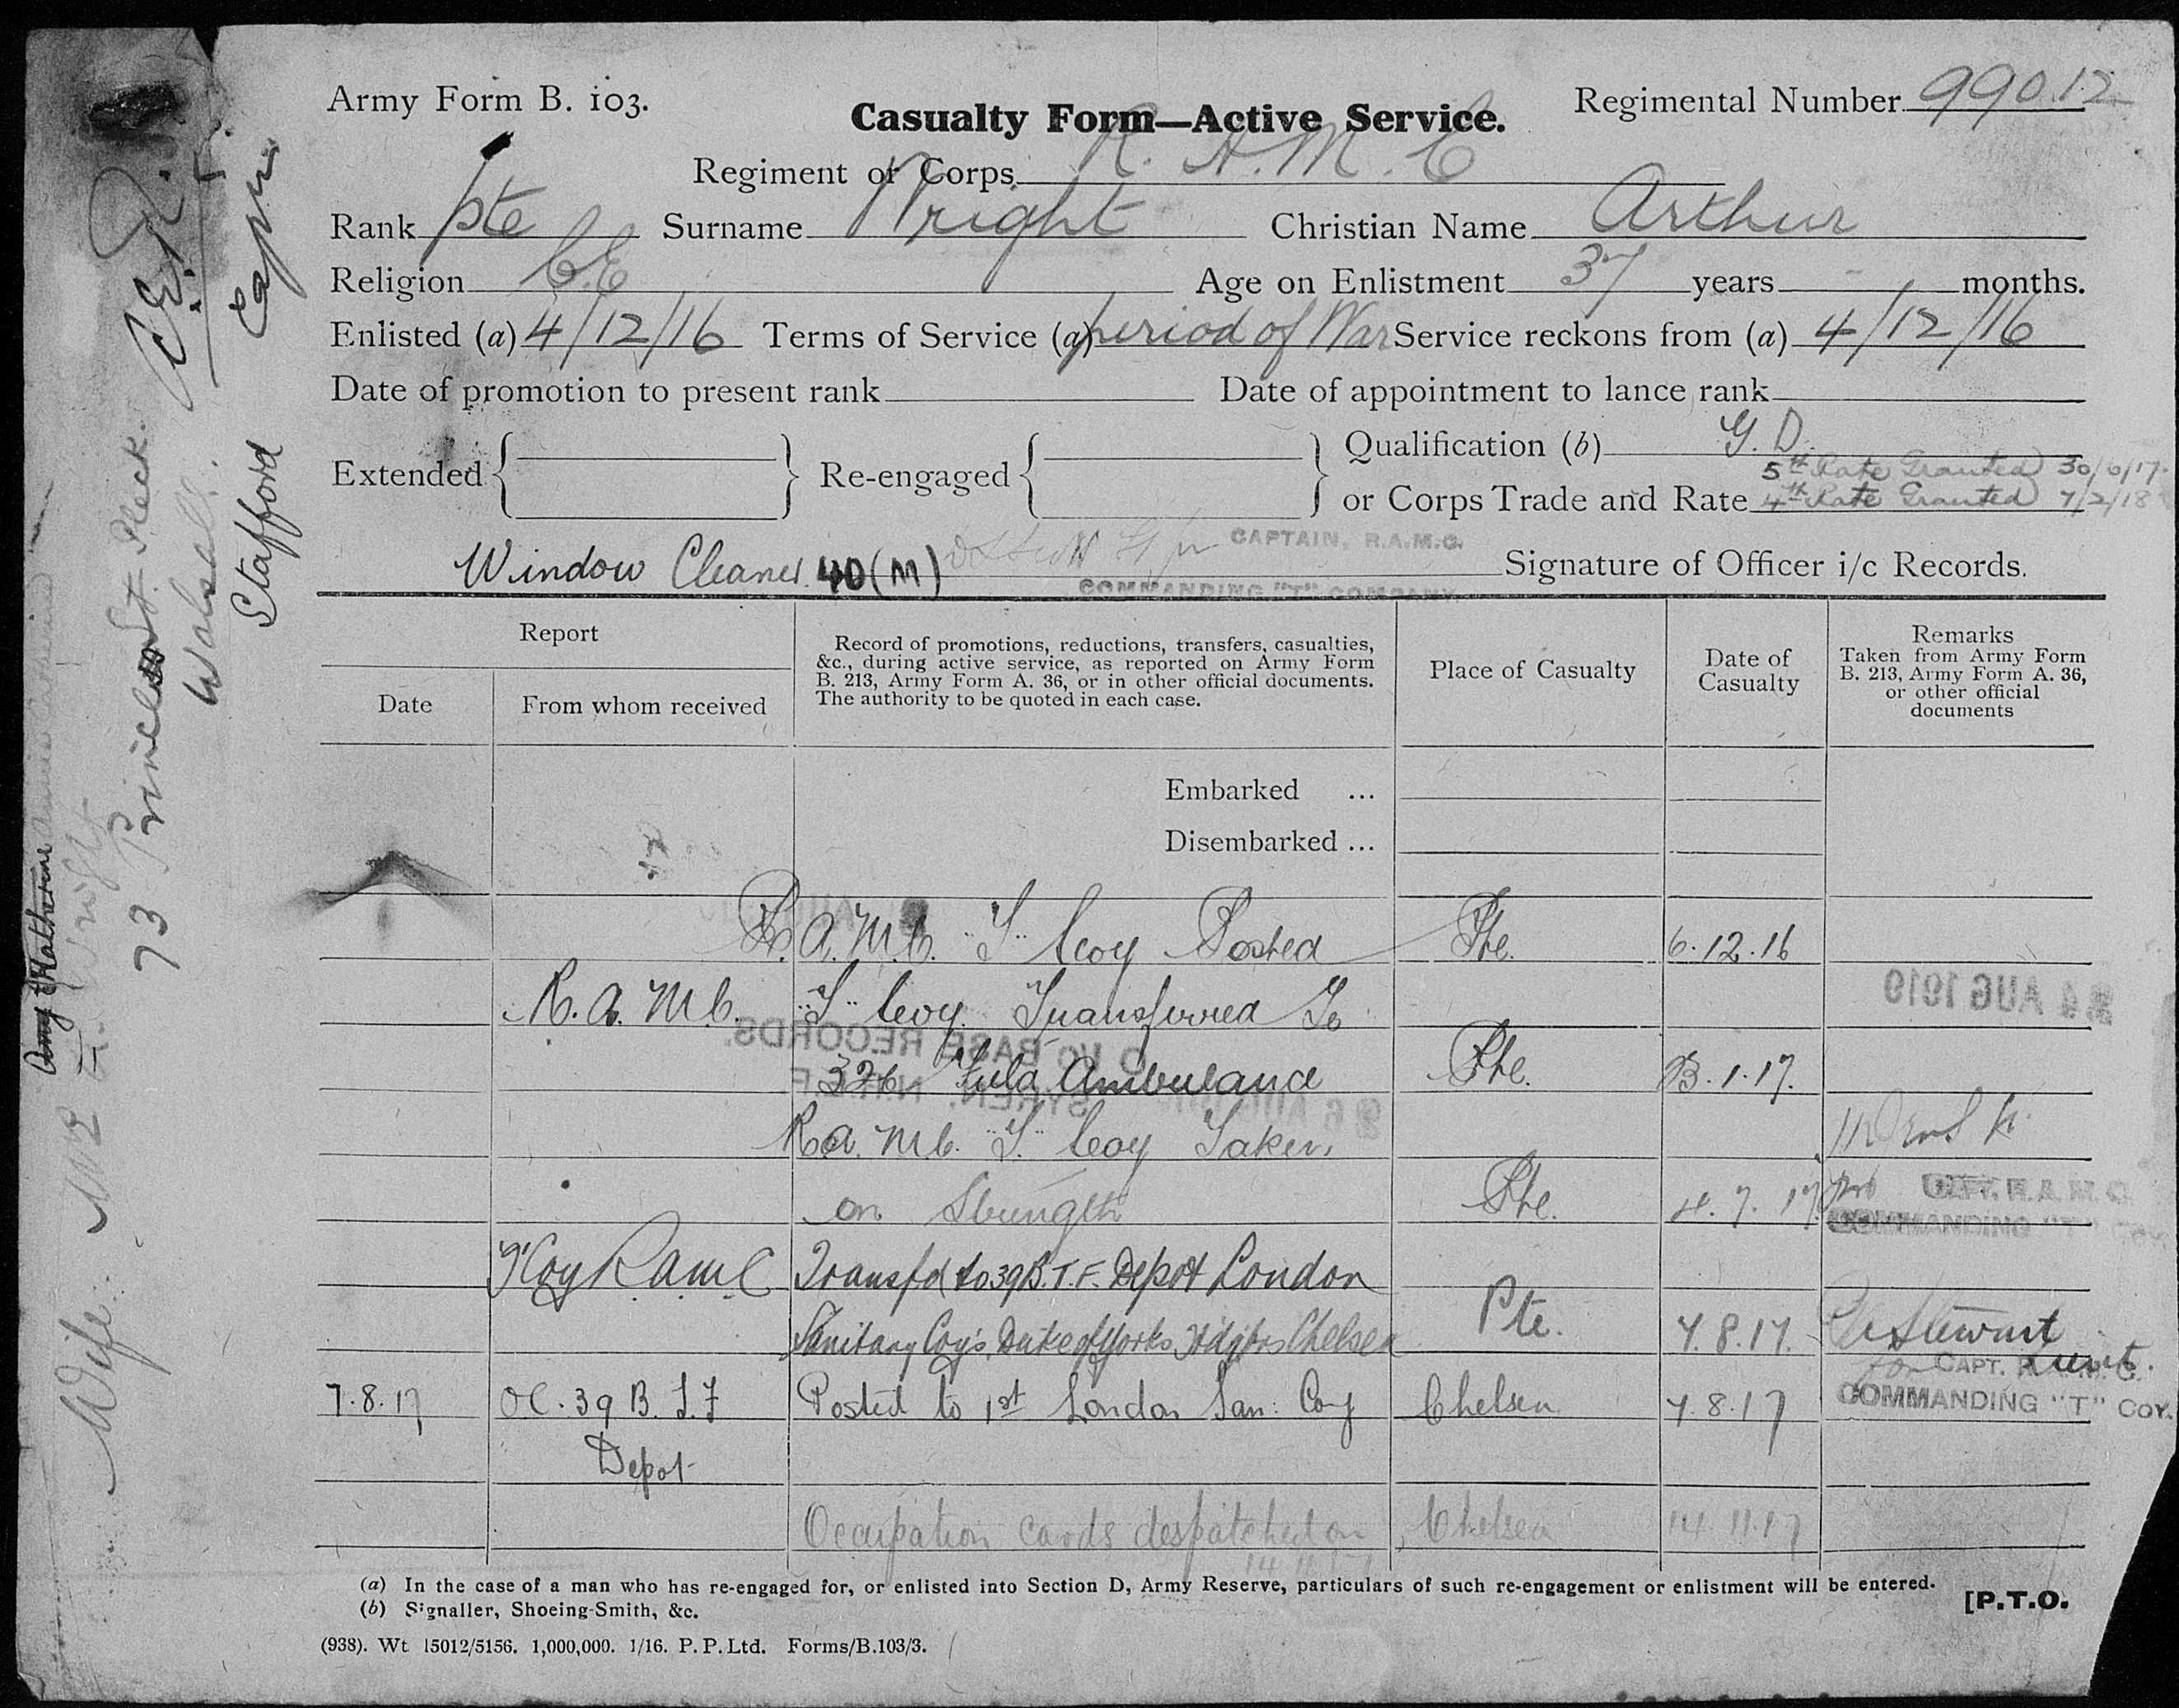 Army Form B. 103.
Casualty Form—Active Service.
Regimental Number 99012
Regiment or Corps R. A. M. C
Rank Pte Surname Wright Christian Name Arthur
Religion C.E Age on Enlistment 37 years - months.
Enlisted (a) 4/12/16 Terms of Service (a) period of War Service reckons from (a) 4/12/16
Date of promotion to present rank Date of appointment to lance rank
Extended Re-engaged Qualification (b) G. D.
5th Rate Granted 30/6/17.
or Corps Trade and Rate 4th Rate Granted 7/2/18
CAPTAIN, R.A.M.C.
Window Cleaner. 40 (M) Signature of Officer i/c Records.
COMMANDING "T" COMPANY
Report
Date
From whom received
Record of promotions, reductions, transfers, casualties,
&c., during active service, as reported on Army Form
B. 213, Army Form A. 36, or in other official documents.
The authority to be quoted in each case.
Place of Casualty
Date of
Casualty
Remarks
Taken from Army Form
B. 213, Army Form A. 36,
or other official
documents
Embarked ...
Disembarked ...
R. A. M. C. "T" Coy Posted Pte. 6.12.16
R. A. M. C. "T" Coy. Transferred To
24 AUG 1919
O I/C BASE RECORDS.
326 Field Ambulance Pte. 1.17.
SYREN, N.R.E.F.
R.A. M.C. "T." Coy Taken
on Strength Pte. 4. 7. 17
CAPT. R.A.M.C.
COMMANDING "T" Coy.
"T" Coy R.A.M.C Transfd to 39 B.T.F. Depot London
Sanitary Coy's, Duke of Yorks Hdqtrs Chelsea Pte. 7.8.17. Stewart
Lieut.
for CAPT. R.A.M.C.
COMMANDING "T" COY.
7.8.17 O.C. 39 B. T. F Posted to 1st London San: Coy Chelsea 7.8.17
Depot
Occupation cards despatched on Chelsea 14.11.17
14 11 17
(a) In the case of a man who has re-engaged for, or enlisted into Section D, Army Reserve, particulars of such re-engagement or enlistment will be entered.
(b) Signaller, Shoeing-Smith, &c.
[P.T.O.
(938). Wt 15012/5156. 1,000,000. 1/16. P. P. Ltd. Forms/B.103/3.
Wife:
Wright
73 Princes St. Pleck.
Walsall.
Stafford